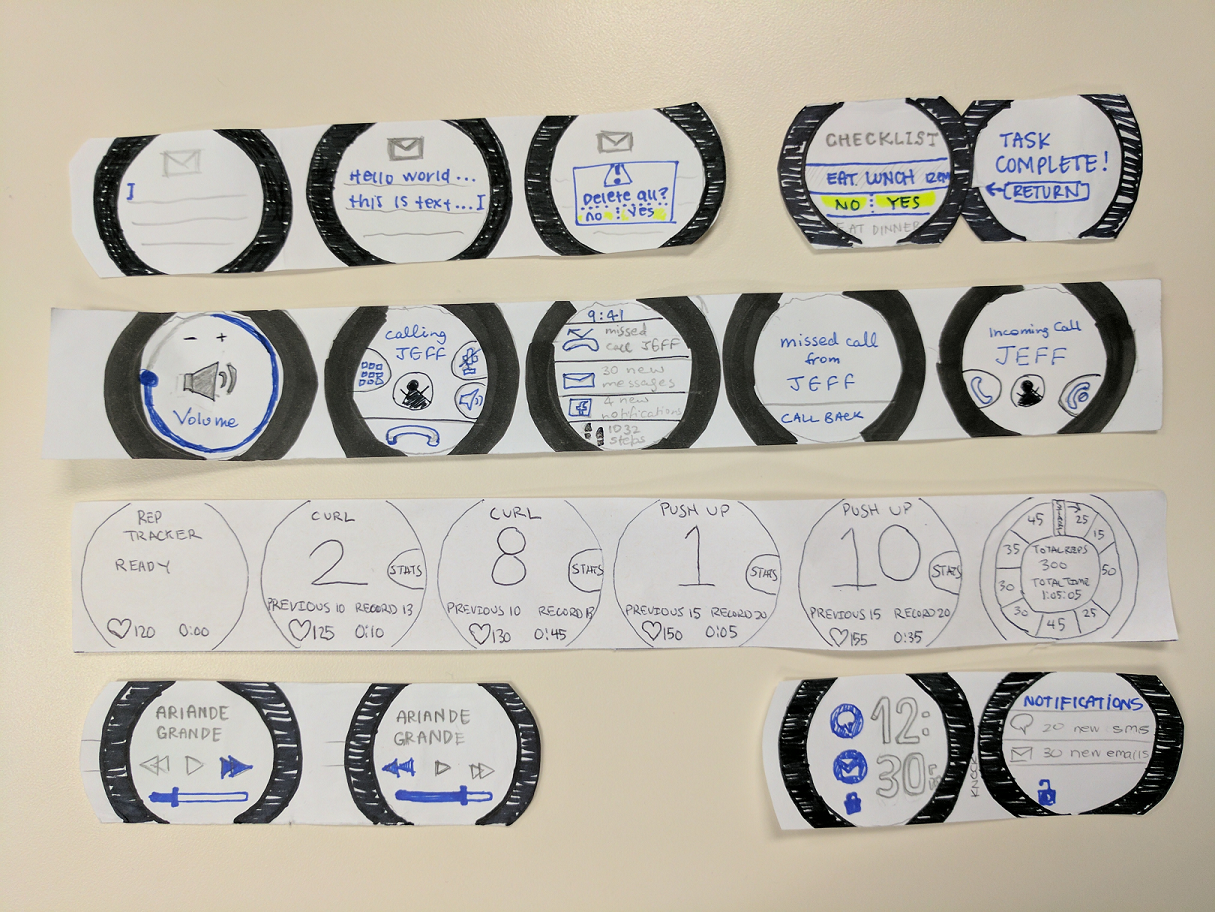 I
Hello world...
this is text...I
Delete all?
no YES
CHECKLIST
EAT LUNCH
NO YES
EAT DINNER
TASK
COMPLETE!
RETURN
- +
Volume
calling
JEFF
9:41
missed
call JEFF
30 new
messages
f 4 new
notifications
1032
steps
missed call
from
JEFF
CALL BACK
Incoming Call
JEFF
REP
TRACKER
READY
120 0:00
CURL
2
STATS
PREVIOUS 10 RECORD 13
125 0:10
CURL
8
STATS
PREVIOUS 10 RECORD 13
130 0:45
PUSH UP
1
STATS
PREVIOUS 15 RECORD 20
150 0:05
PUSH UP
10
STATS
PREVIOUS 15 RECORD 20
155 0:35
START
25
15
50
25
45
30
30
35
45
TOTAL REPS
300
TOTAL TIME
1:05:05
ARIANDE
GRANDE
ARIANDE
GRANDE
12:
30
KNOCK
NOTIFICATIONS
20 new sms
30 new emails